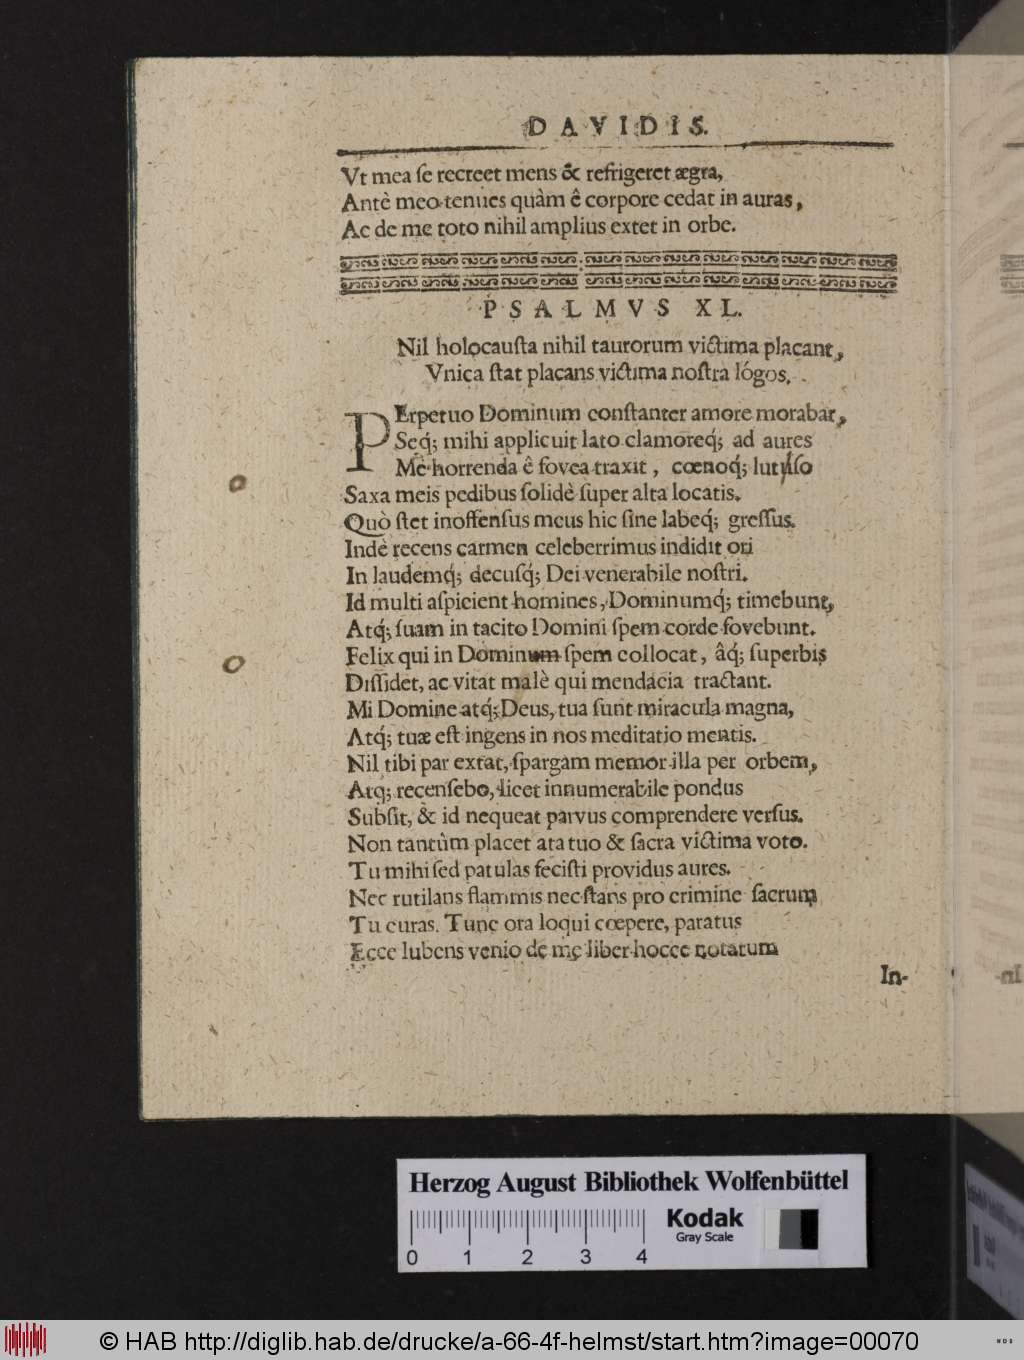 DAVIDIS.
Vt mea se recreet mens & refrigeret ægra,
Antè meo tenues quàm ê corpore cedat in auras,
Ac de me toto nihil amplius extet in orbe.
PSALMVS XL.
Nil holocausta nihil taurorum victima placant,
Vnica stat placans victima nostra lógos.
PErpetuo Dominum constanter amore morabar,
Seq́; mihi applicuit lato clamoreq́; ad aures
Mè horrenda ê fovea traxit, cœnoq́;
Saxa meis pedibus solidè super alta locatis.
Quò stet inoffensus meus hic sine labeq́; gressus.
Indè recens carmen celeberrimus indidit ori
In laudemq́; decusq́; Dei venerabile nostri.
Id multi aspicient homines, Dominumq́; timebunt,
Atq́; suam in tacito Domini spem corde fovebunt.
Felix qui in Dominum spem collocat, âq́; superbis
Dissidet, ac vitat malè qui mendacia tractant.
Mi Domine atq́; Deus, tua sunt miracula magna,
Atq́; tuæ est ingens in nos meditatio mentis.
Nil tibi par extat, spargam memor illa per orbem,
Atq; recensebo, licet innumerabile pondus
Subsit, & id nequeat parvus comprendere versus.
Non tantùm placet ara tuo & sacra victima voto.
Tu mihi sed patulas fecisti providus aures.
Nec rutilans flammis nec stans pro crimine sacrum
Tu curas. Tunc ora loqui cœpere, paratus
Ecce lubens venio de me liber hocce notatum
In-
Herzog August Bibliothek Wolfenbüttel
Kodak
Gray Scale
0 1 2 3 4
© HAB http://diglib.hab.de/drucke/a-66-4f-helmst/start.htm?image=00070